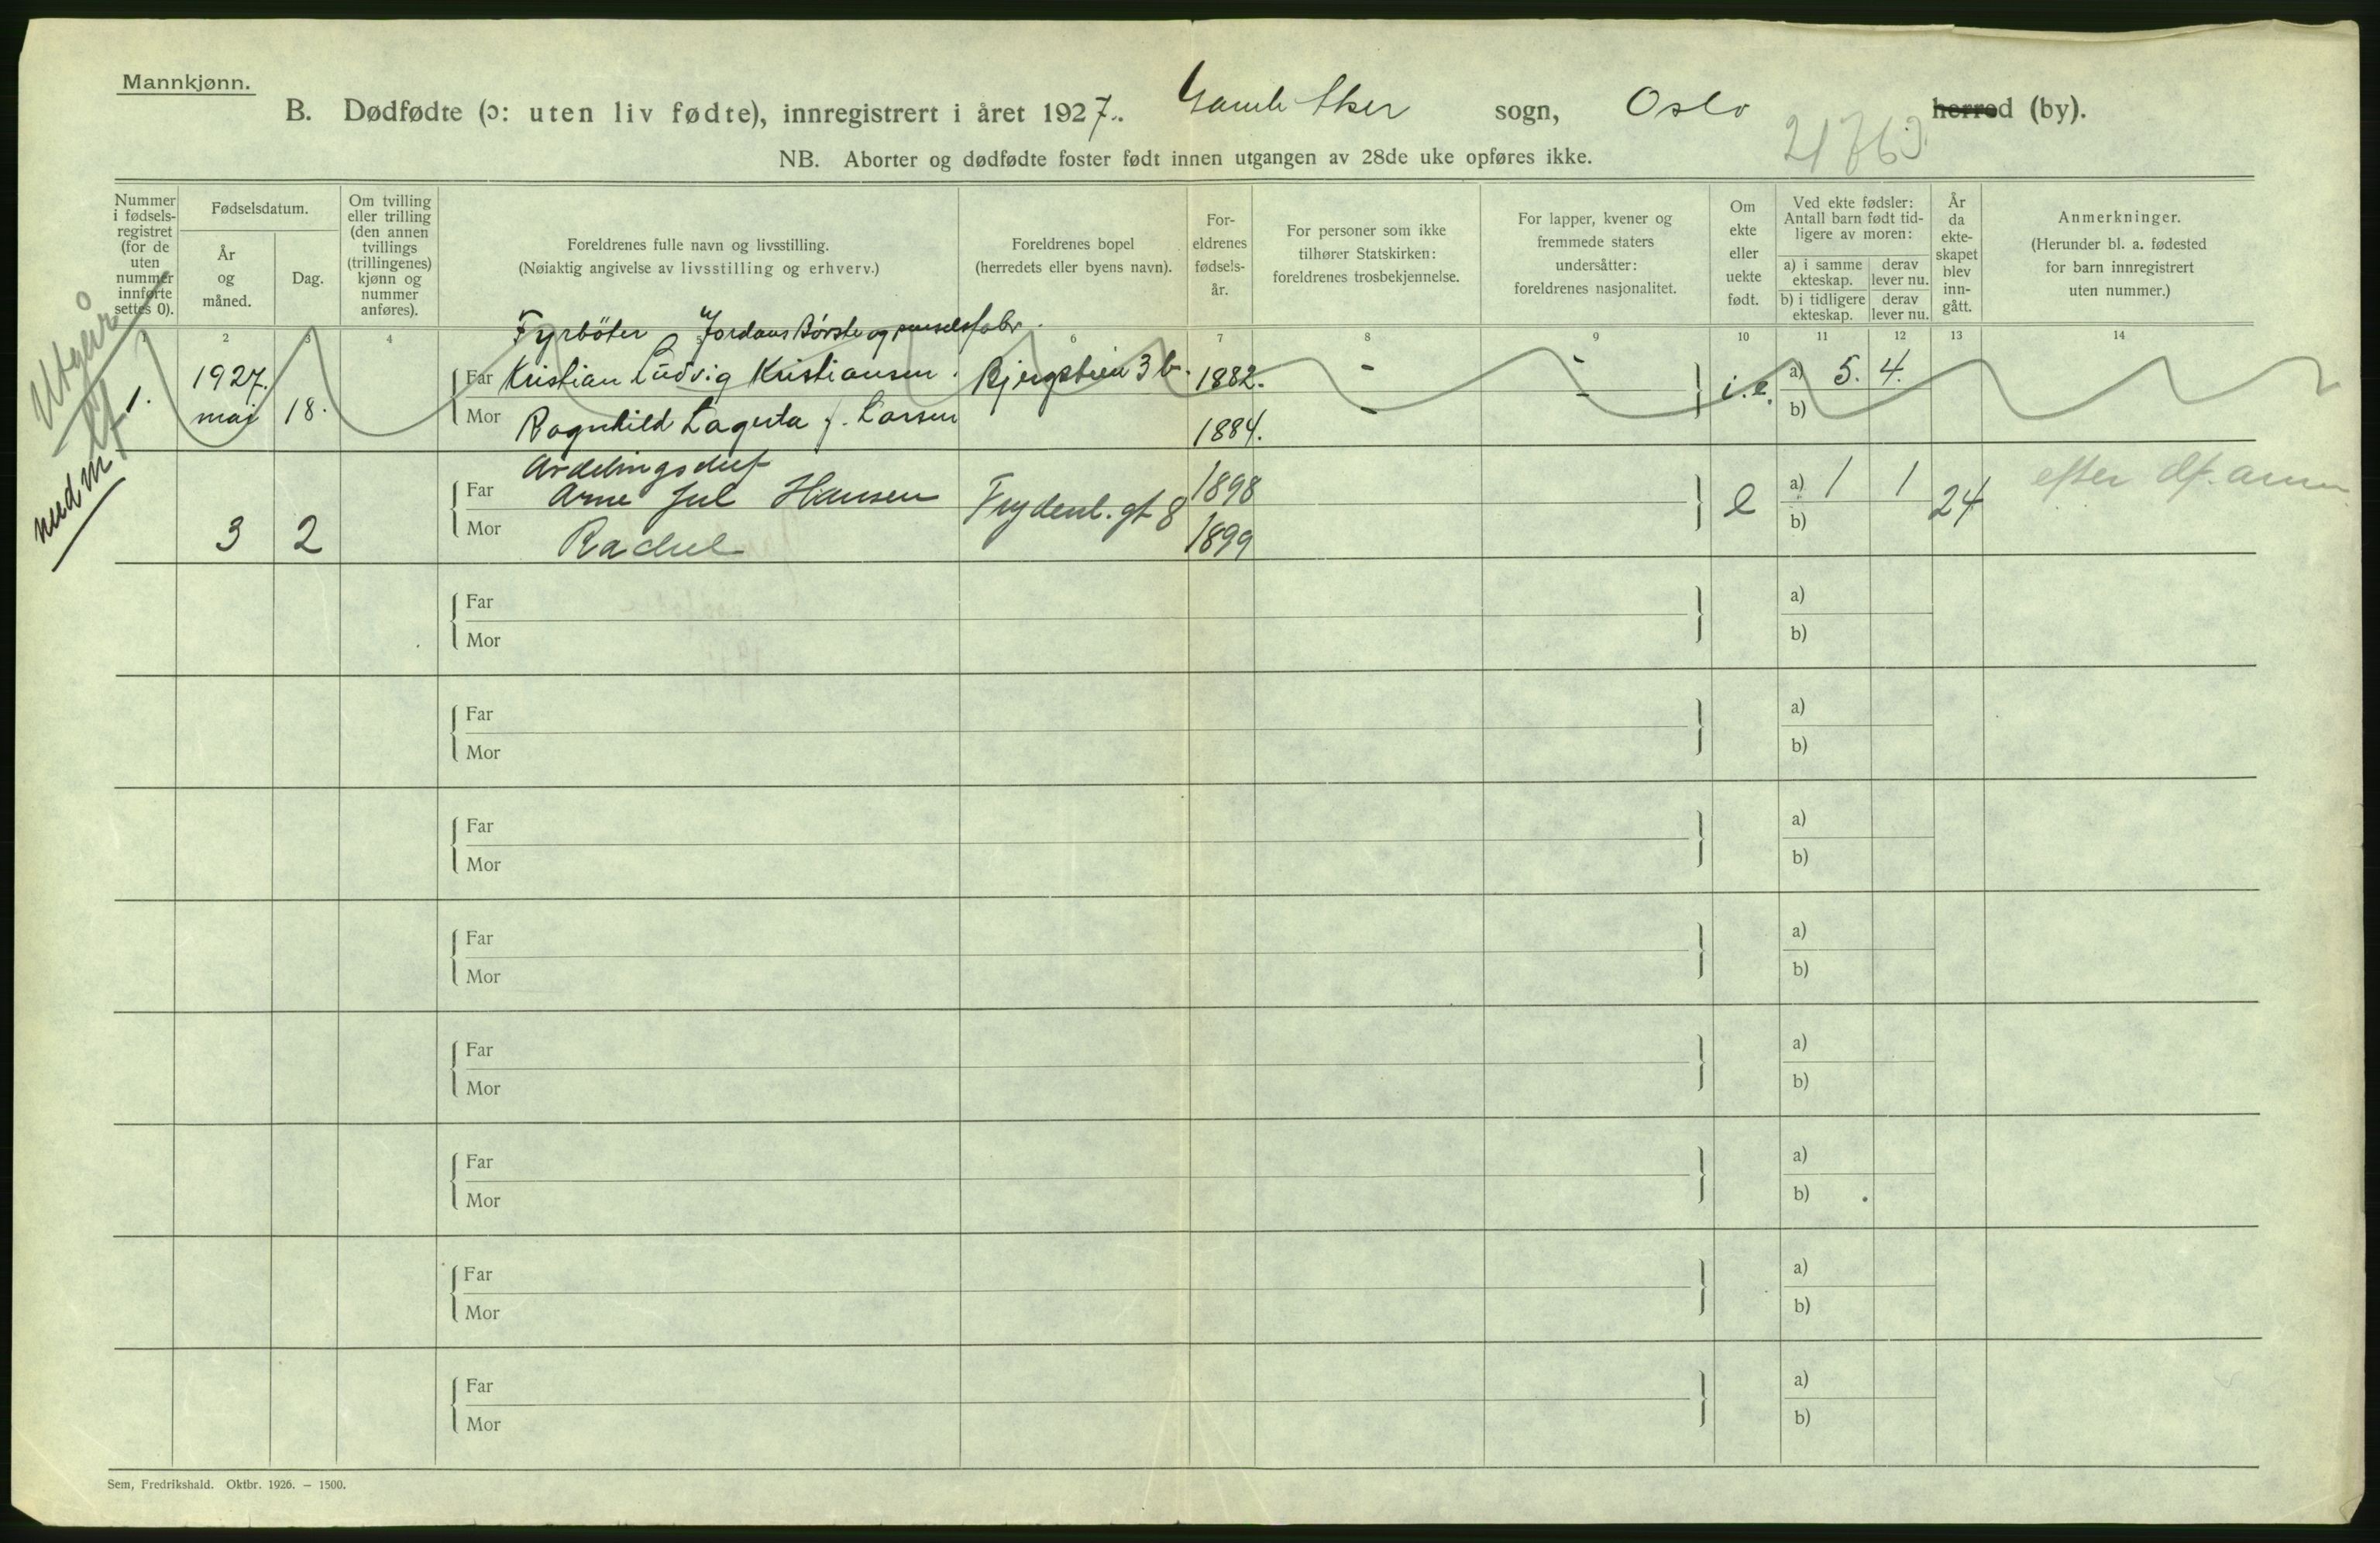 Mannkjønn.
B. Dødfødte (ɔ: uten liv fødte), innregistrert i året 1927. Gamle Aker sogn, Oslo herred (by).
21763
NB. Aborter og dødfødte foster født innen utgangen av 28de uke opføres ikke.
Nummer i fødselsregistret (for de uten nummer innførte settes 0).
Fødselsdatum.
År og måned.
Dag.
Om tvilling eller trilling (den annen tvillings (trillingenes) kjønn og nummer anføres).
Foreldrenes fulle navn og livsstilling.
(Nøiaktig angivelse av livsstilling og erhverv.)
Foreldrenes bopel
(herredets eller byens navn).
Foreldrenes fødselsår.
For personer som ikke tilhører Statskirken: foreldrenes trosbekjennelse.
For lapper, kvener og fremmede staters undersåtter: foreldrenes nasjonalitet.
Om ekte eller uekte født.
Ved ekte fødsler: Antall barn født tidligere av moren:
a) i samme ekteskap. derav lever nu.
b) i tidligere ekteskap. derav lever nu.
År da ekteskapet blev inngått.
Anmerkninger.
(Herunder bl. a. fødested for barn innregistrert uten nummer.)
1 2 3 4 5 6 7 8 9 10 11 12 13 14
Utgår
Fyrböter Jordans Börste og penselsfabr.
1. 1927. mai 18. Far Kristian Ludvig Kristiansen. Bjergstien 3 b. 1882. - - i.e. a) 5. 4.
Mor Ragnhild Lagerta f. Larsen 1884. - - b)
med m
Avdelingschef
Far Arne Jul Hansen Frydenl. gt 8 1898 e a) 1 1 24 efter df. anm
3 2 Mor Rachel 1899 b)
Far a)
Mor b)
Far a)
Mor b)
Far a)
Mor b)
Far a)
Mor b)
Far a)
Mor b)
Far a)
Mor b)
Far a)
Mor b)
Far a)
Mor b)
Sem, Fredrikshald. Oktbr. 1926. – 1500.